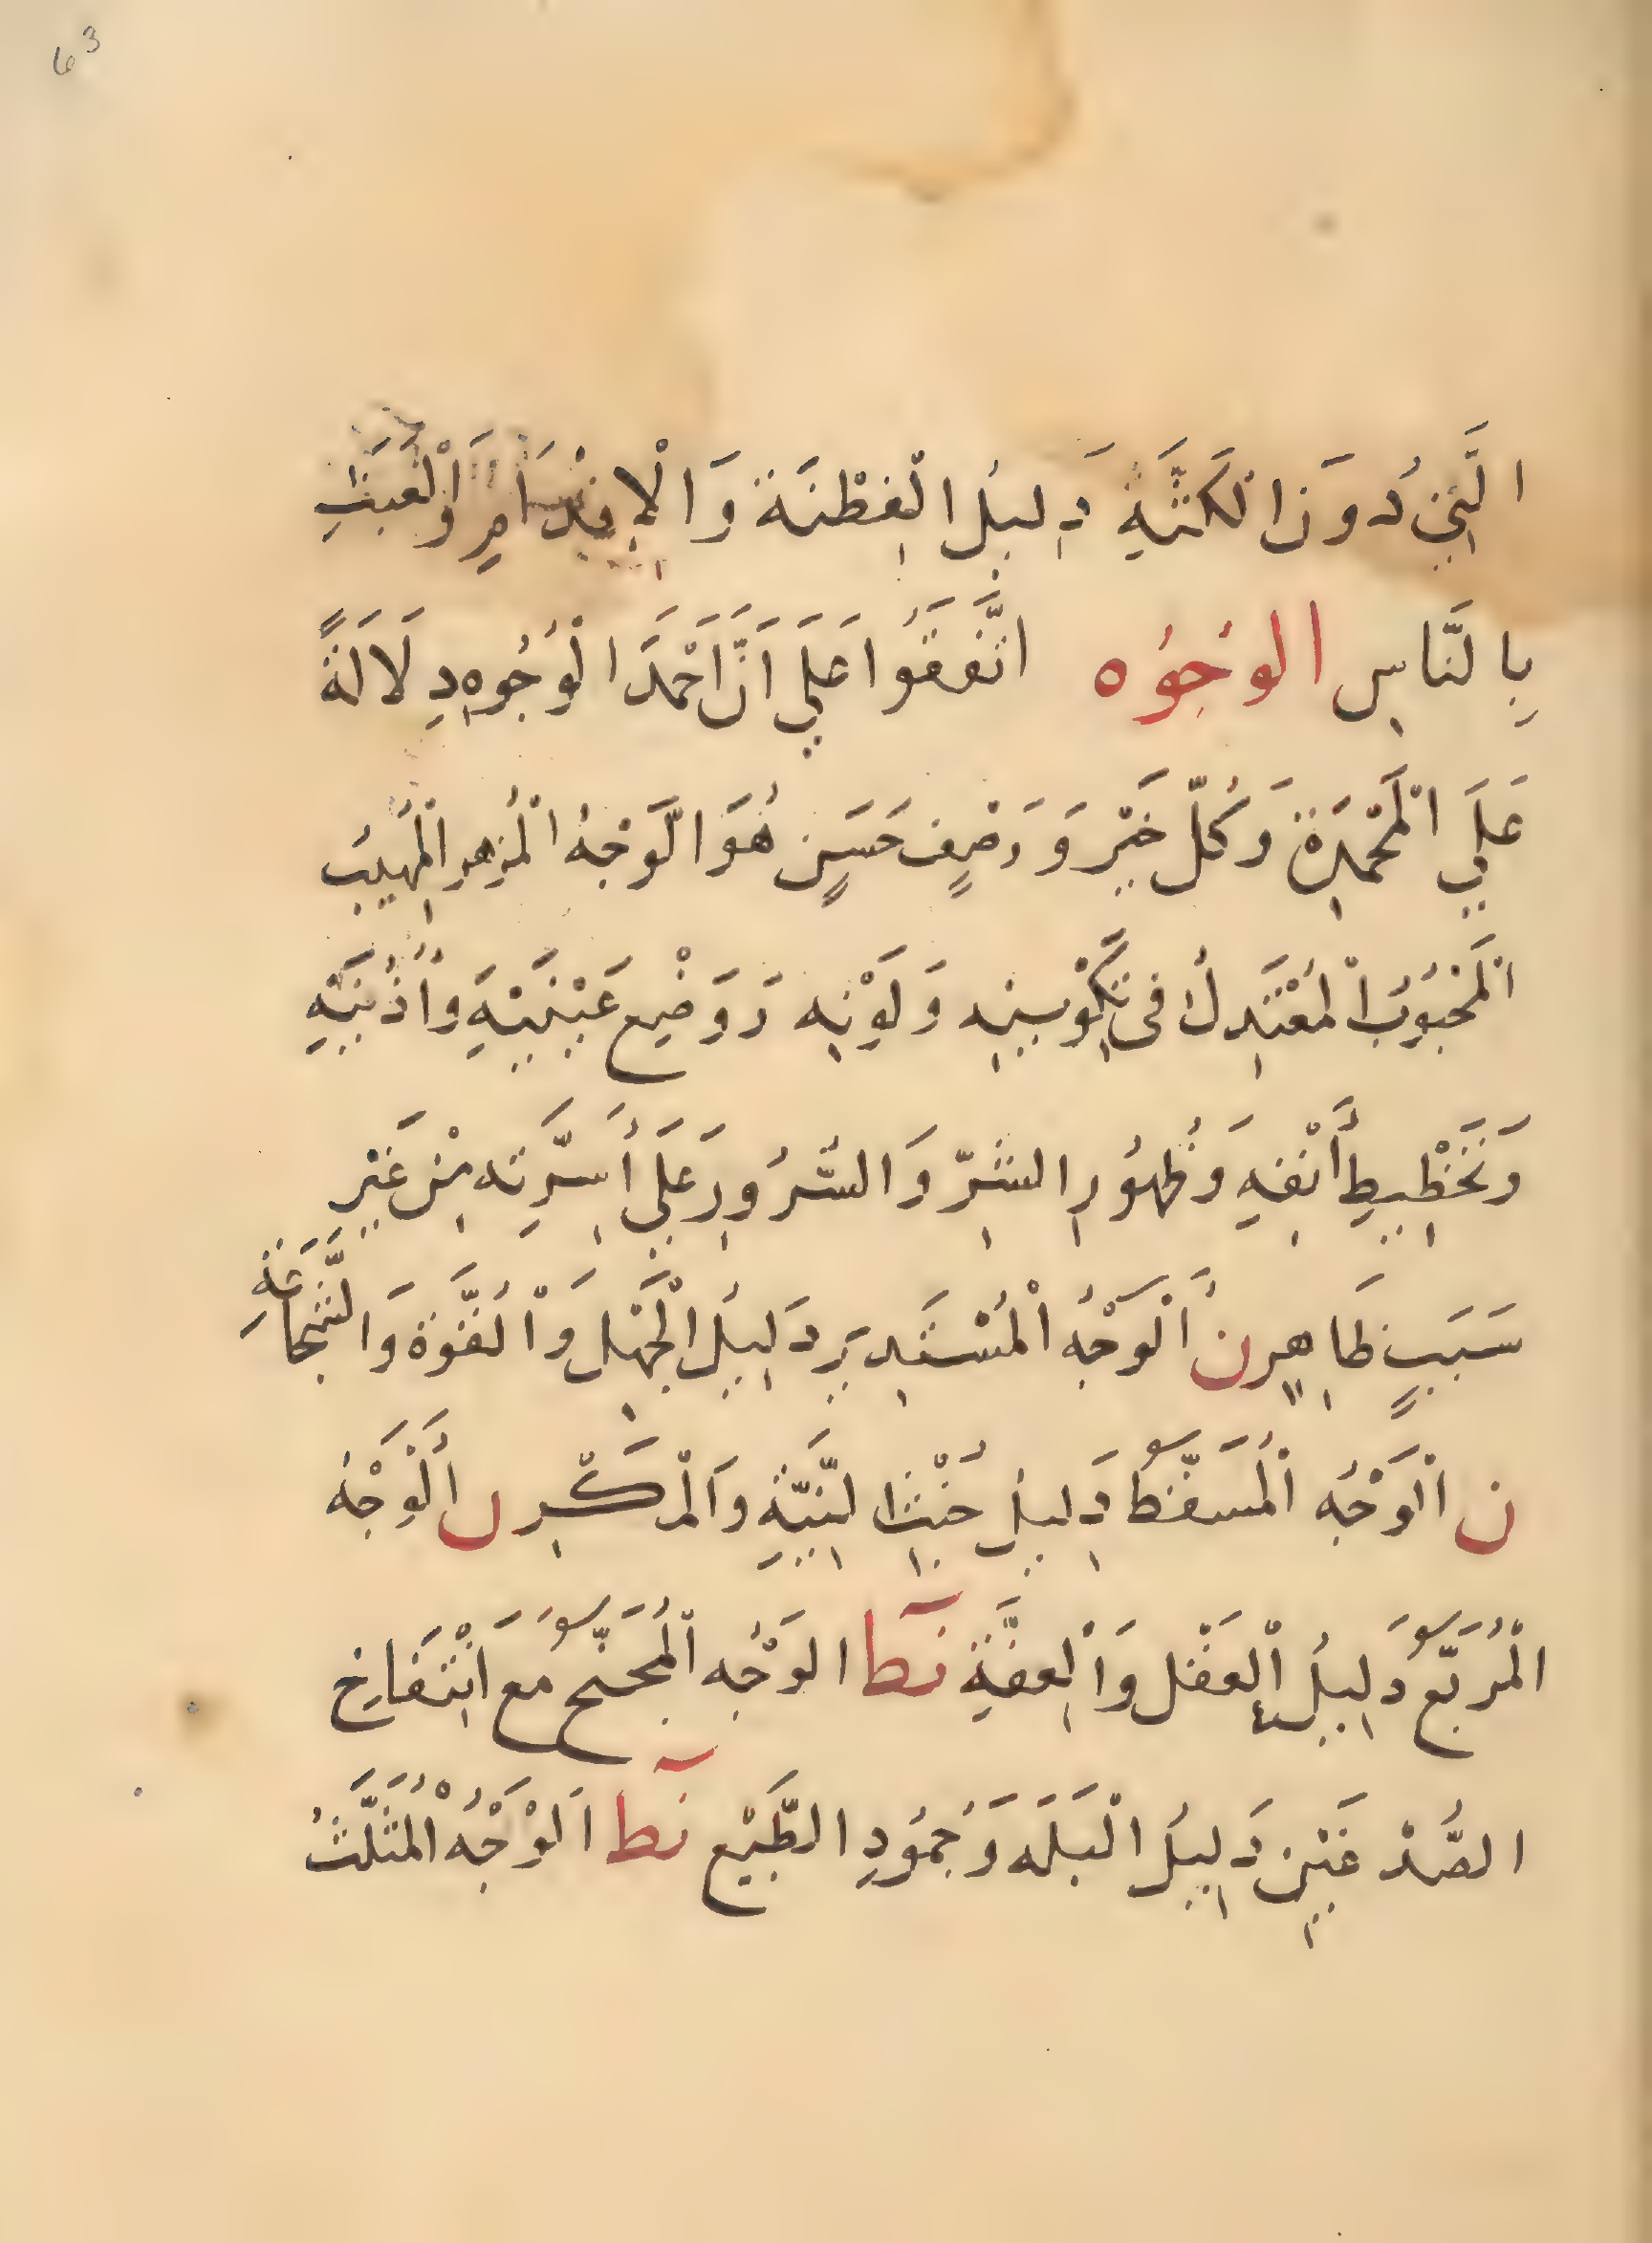 63
الَّتِي دُونَ الكَثَّةِ دَلِيلُ الْفِطْنَةِ وَالْإِقْدَامِ وَالْعَبَثِ
بِالنَّاسِ الوُجُوُه اتَّفَقُوا عَلَي اَنَّ اَحْمَدَ الْوُجُوهِ دِلَالَةً
عَلَي الْمَحْمِدَةِ وَكُلّ خَيْرٍ وَوَصْفٍ حَسَنٍ هُوَ الْوَجْهُ الْمُزْهِرِ الْمَهِيبُ
الْمَحْبُوبُ الْمُعْتَدِلُ فى تَكْوِينِه وَلَوْنِه وَوَضْعِ عَيْنَيْهِ وَأُذُنَيْهِ
وَتَخْطِيطِ أَنْفِهِ وَظُهُورِ البِشْرِ وَالسُّرُورِ عَلَي أَسِرَّتِه مِنْ غَيْرِ
سَبَبٍ ظَاهِرٍ ن أَلْوَجْهُ الْمُسْتَدِيرُ دَلِيلُ الْجَهْلِ وَالْقُوَّةِ وَالشَّجَاعَةِ
ن الْوَجْهُ الْمُسَقَّطُ دَلِيلُ خُبْثِ النِّيَّةِ وَالْمَكْرِ ن أَلْوَجْهُ
الْمُرَبَّعُ دَلِيلُ الْعَقْلِ وَالْعِفَّةِ نط الوَجْهُ الْمُجَنَّحُ مَعَ انْتِفَاخِ
الصُّدْغَيْنِ دَلِيلُ الْبَلَهِ وَجُمُودِ الطَّبْعِ نط اَلْوَجْهُ الْمُثَلَّثُ